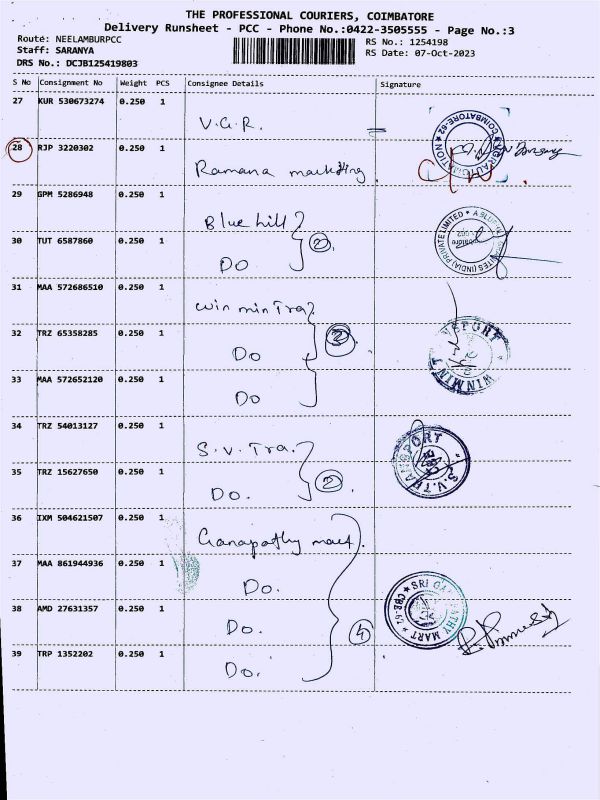 THE PROFESSIONAL COURIERS, COIMBATORE
Delivery Runsheet - PCC - Phone No.:0422-3505555 - Page No.:3
Route: NEELAMBURPCC
RS No.: 1254198
Staff: SARANYA
RS Date: 07-Oct-2023
DRS No.: DCJB125419803
S No Consignment No Weight PCS Consignee Details Signature
27 KUR 530673274 0.250 1
V.G.R.
28 RJP 3220302 0.250 1
Ramana
29 GPM 5286948 0.250 1
Blue hill
30 TUT 6587860 0.250 1
DO
2
31 MAA 572686510 0.250 1
win min Tra
32 TRZ 65358285 0.250 1
Do
33 MAA 572652120 0.250 1
Do
WINMIN TRANSPORT
34 TRZ 54013127 0.250 1
S.V. Tra.
35 TRZ 15627650 0.250 1
Do.
2
S.V. TRANSPORT
36 IXM 504621507 0.250 1
Ganapathy mart.
37 MAA 861944936 0.250 1
Do.
38 AMD 27631357 0.250 1
Do.
4
39 TRP 1352202 0.250 1
Do.